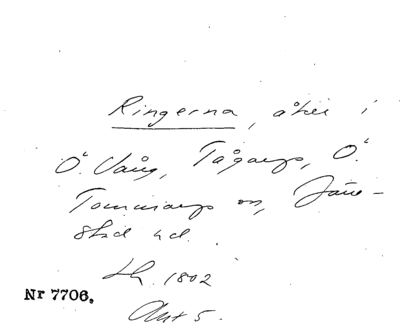 Ringerna, åker i
Ö. Vång, Tågarp, Ö.
Tommarps sn, Järe-
stad hd.
Lh. 1802
Akt 5.
Nr 7706.